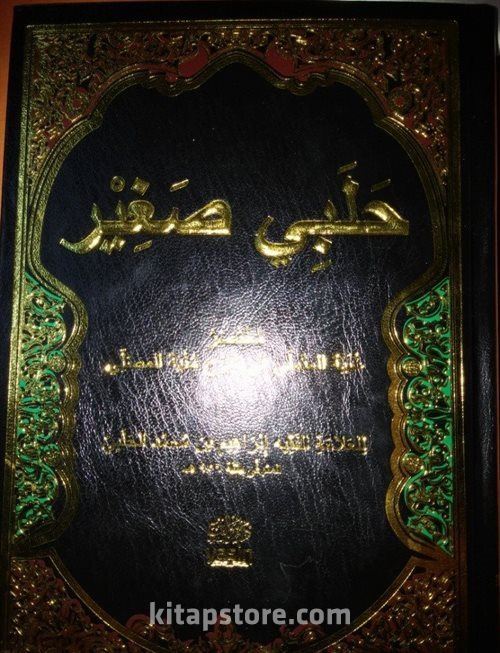 حَلَبِي صَغِيْر
مختصر
غنية المتملي شرح منية المصلي
للعلامة الفقيه إبراهيم بن محمد الحلبي
هـ
kitapstore.com